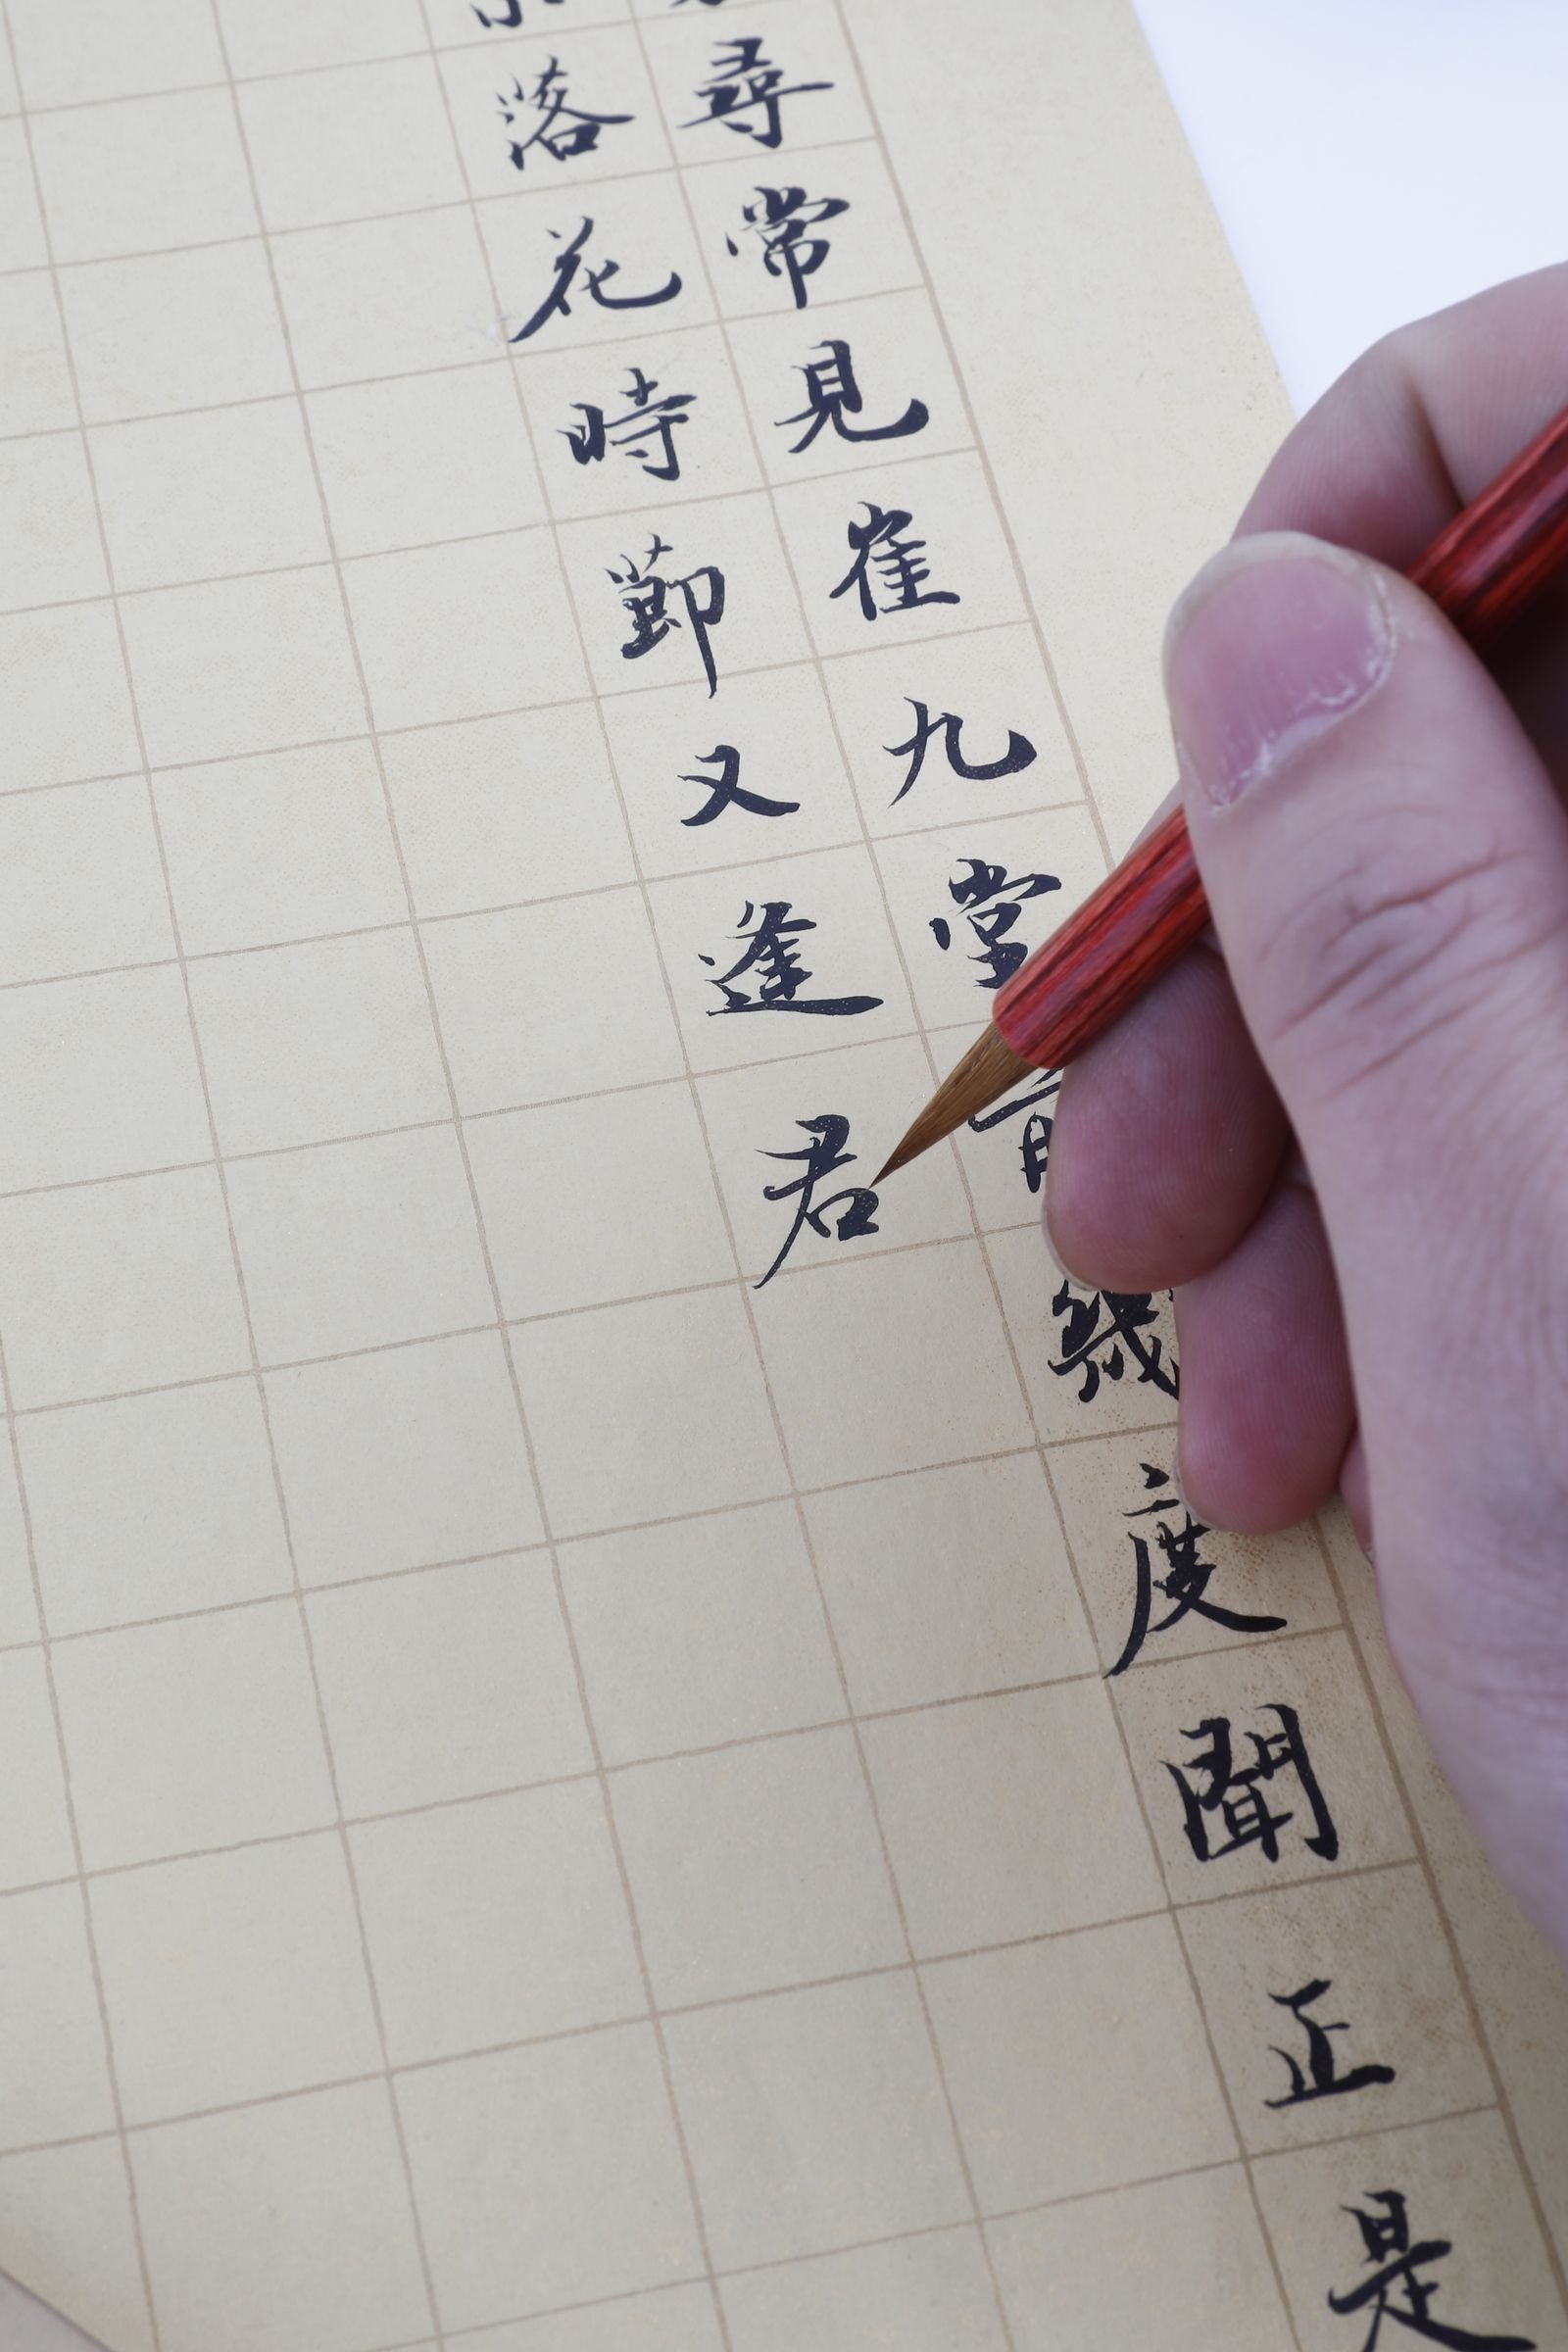 尋常見崔九堂前幾度聞正是
落花時莭又逢君